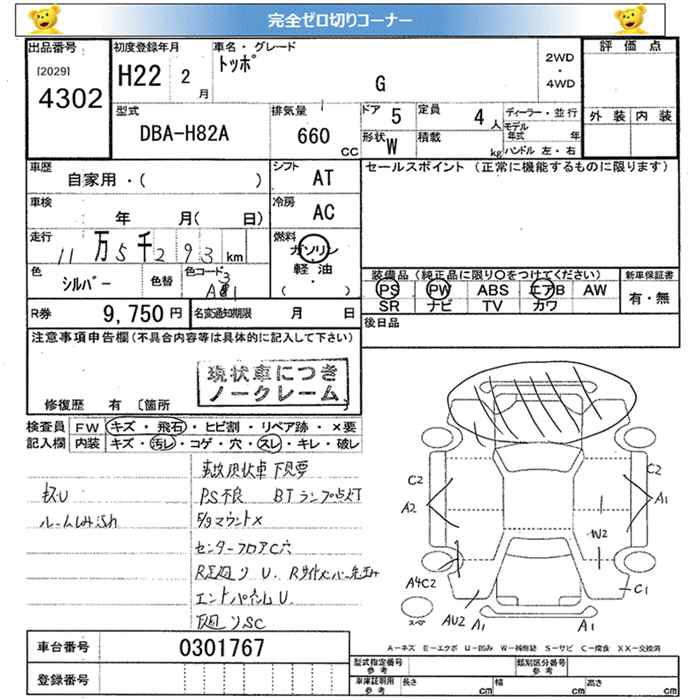 完全ゼロ切りコーナー
出品番号
[2029]
4302
初度登録年月
H22 2 月
車名・グレード
トッポ
G
2WD
・
4WD
評価点
外装 内装
型式
DBA-H82A
排気量
660 cc
ドア 5
定員 4 人
ディーラー・並行
モデル年式 年
形状 W
積載 kg
ハンドル 左・右
車歴
自家用・( )
シフト AT
セールスポイント (正常に機能するものに限ります)
車検
年 月( 日)
冷房 AC
走行
11万5千293 km
燃料
ガソリン
軽油
・
( )
色
シルバー
色替
色コード
A31
装備品 (純正品に限り○をつけてください)
新車保証書
PS PW ABS エアB AW
有・無
SR ナビ TV カワ
R券 9,750 円
名変通知期限 月 日
後日品
注意事項申告欄(不具合内容等は具体的に記入して下さい)
現状車につき
ノークレーム
修復歴 有 [箇所 ]
検査員 FW キズ・飛石・ヒビ割・リペア跡・×要
記入欄 内装 キズ・汚レ・コゲ・穴・スレ・キレ・破レ
事故現状車 下見要
PS不良 BTランプ点灯
ルームしみ
マウント×
センターフロアC穴
R足廻りU. Rサイドメンバー先
エンドパネルU.
下廻りSC
C2 C2
A2 A1
W2
A4C2
C1
スペア
AU2 A1 A1
A−キズ E−エクボ U−凹み W−補修跡 S−サビ C−腐食 XX−交換済
車台番号 0301767
登録番号
型式指定番号
参考
類別区分番号
参考
車庫証明用
参考
長さ cm 幅 cm 高さ cm